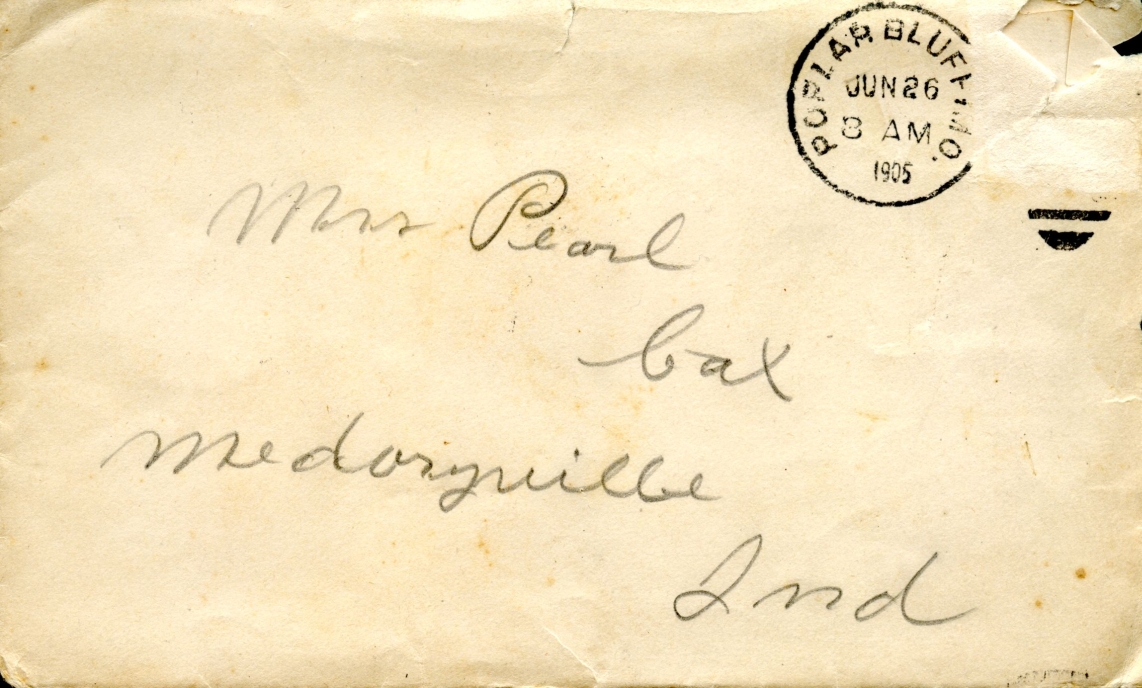 POPLAR BLUFF, MO.
JUN 26
8 AM
1905
Mrs Pearl
Cax
Medoryville
Ind